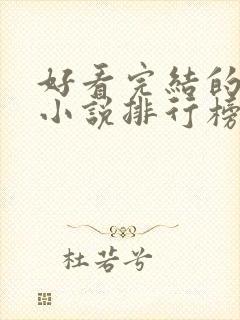 好看完結的
小說排行榜
杜若兮